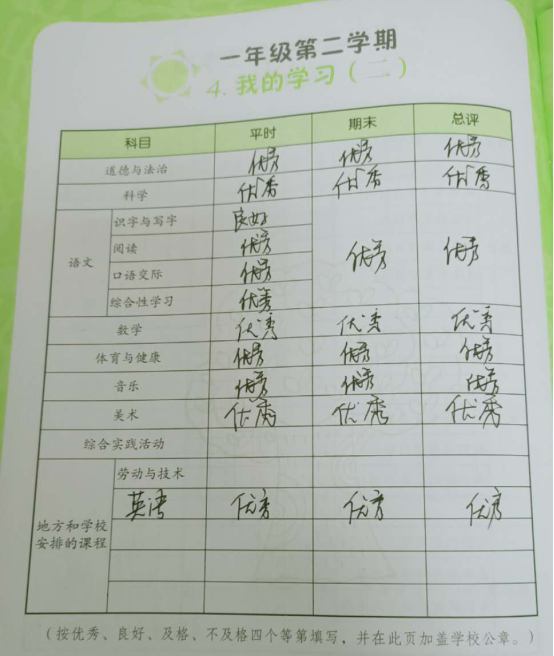 一年级第二学期
4. 我的学习（二）
科目 平时 期末 总评
道德与法治 优秀 优秀 优秀
科学 优秀 优秀 优秀
语文 识字与写字 良好
阅读 优秀 优秀 优秀
口语交际 优秀
综合性学习 优秀
数学 优秀 优秀 优秀
体育与健康 优秀 优秀 优秀
音乐 优秀 优秀 优秀
美术 优秀 优秀 优秀
综合实践活动
地方和学校安排的课程 劳动与技术
英语 优秀 优秀 优秀
（按优秀、良好、及格、不及格四个等第填写，并在此页加盖学校公章。）